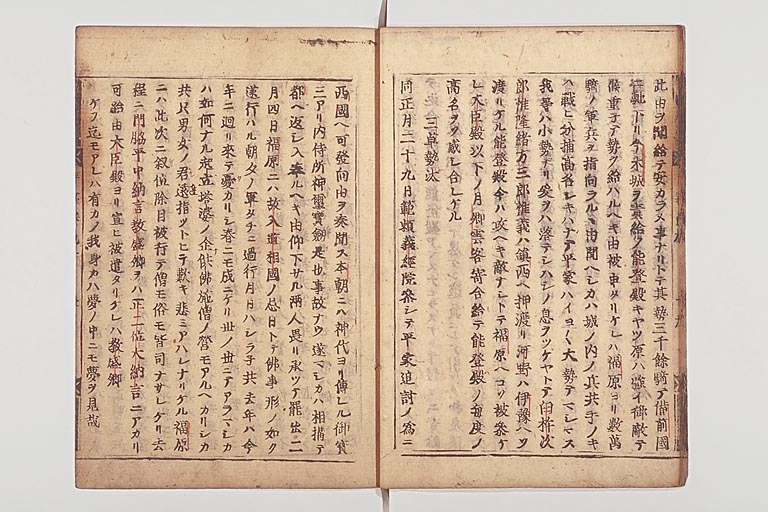 此由ヲ聞給テ安カラヌ事ナリトテ其勢三千餘騎テ備前國
ニ馳下リ今木城ヲ責給ク能登殿キヤツ原ハ強イ御敵テ
候重テ勢ヲ給ハルヘキ由被申タリケレハ福原ヨリ數萬
騎ノ軍兵ヲ指向ラルヽ由聞ヘシカハ城ノ内ノ兵共手ノキ
ハ戰ヒ分捕高名シキハメテ平家ハイヨ〱大勢テマシマス
我等ハ小勢ナリ爰ヲハ落テシハシノ息ヲツケヤトテ臼杵次
郎惟隆緒方三郎惟義ハ鎮西ヘ押渡リ河野ハ伊豫ヘソ
渡リケル能登殿今ハ攻ヘキ敵ナシトテ福原ヘコソ被參ケ
レ大臣殿以下ノ月卿雲客寄合給テ能登殿ノ毎度ノ
高名ヲソ感シ合レケル
三草勢汰
同正月二十九日範頼義經院參シテ平家追討ノ爲ニ
西國ヘ可發向由ヲ奏聞ス本朝ニハ神代ヨリ傳レル御寳
三アリ内侍所神璽寳劔是也事故ナウ
都ヘ返シ入奉ルヘキ由仰下サル兩人畏リ承ツテ罷出二
月四日福原ニハ故入道相國ノ忌日トテ佛事形ノ如ク
遂行ハル朝夕ノ軍タチニ過行月日ハシラ子共去年ハ今
年ニ廻リ來テ憂カリシ春ニモ成ニケリ世ノ世ニテアラマシカ
ハ如何ナル起立塔婆ノ企供佛施僧ノ營モアルヘカリシカ
共只男女ノ君達指ツトヒテ歎キ悲ミアハレナリケル福原
ニハ此次ニ叙位除目被行テ僧モ俗モ皆司ナサレケリ去
程ニ門脇平中納言教盛卿ヲハ正二位大納言ニアカリ
可給由大臣殿ヨリ宣ヒ被遣タリケレハ教盛卿
ケフ迄モアレハ有カノ我身カハ夢ノ中ニモ夢ヲ見哉